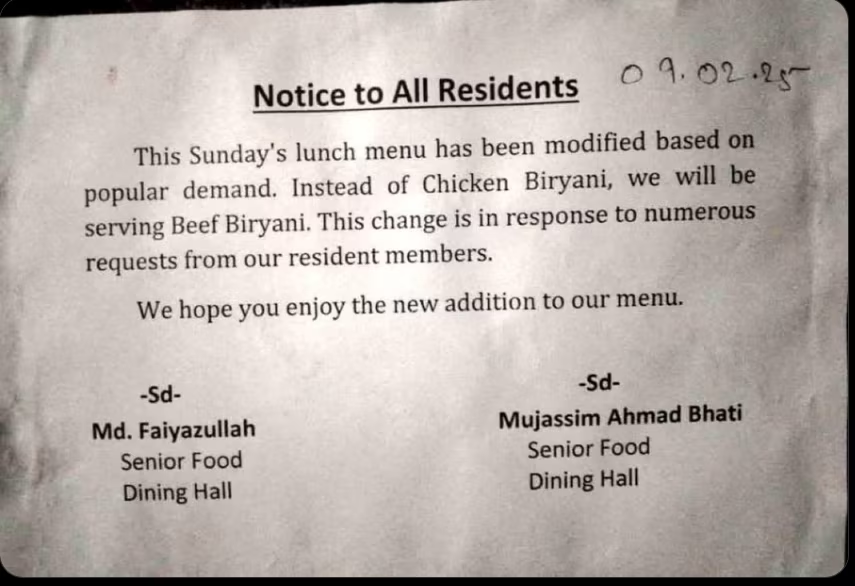 Notice to All Residents
09.02.25
This Sunday's lunch menu has been modified based on
popular demand. Instead of Chicken Biryani, we will be
serving Beef Biryani. This change is in response to numerous
requests from our resident members.
We hope you enjoy the new addition to our menu.
-Sd-
Md. Faiyazullah
Senior Food
Dining Hall
-Sd-
Mujassim Ahmad Bhati
Senior Food
Dining Hall